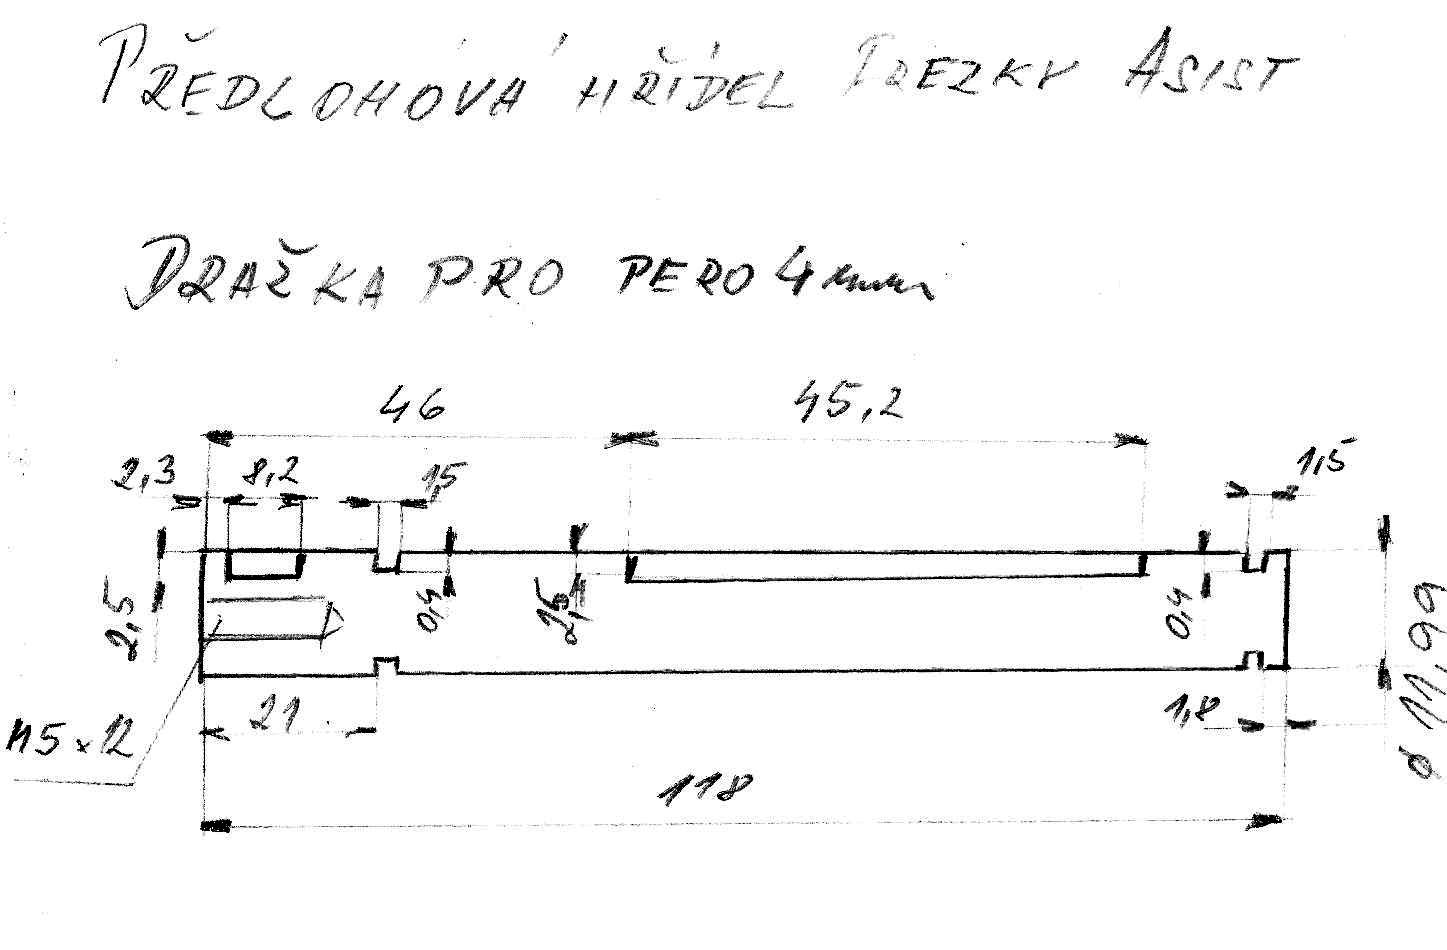 PŘEDLOHOVÁ HŘÍDEL FRÉZKY ASIST
DRAŽKA PRO PERO 4mm
46 45,2
2,3 8,2 1,5 1,5
2,5 0,4 2,5 0,4 ø 11,99
M5x12 21 1,8
118